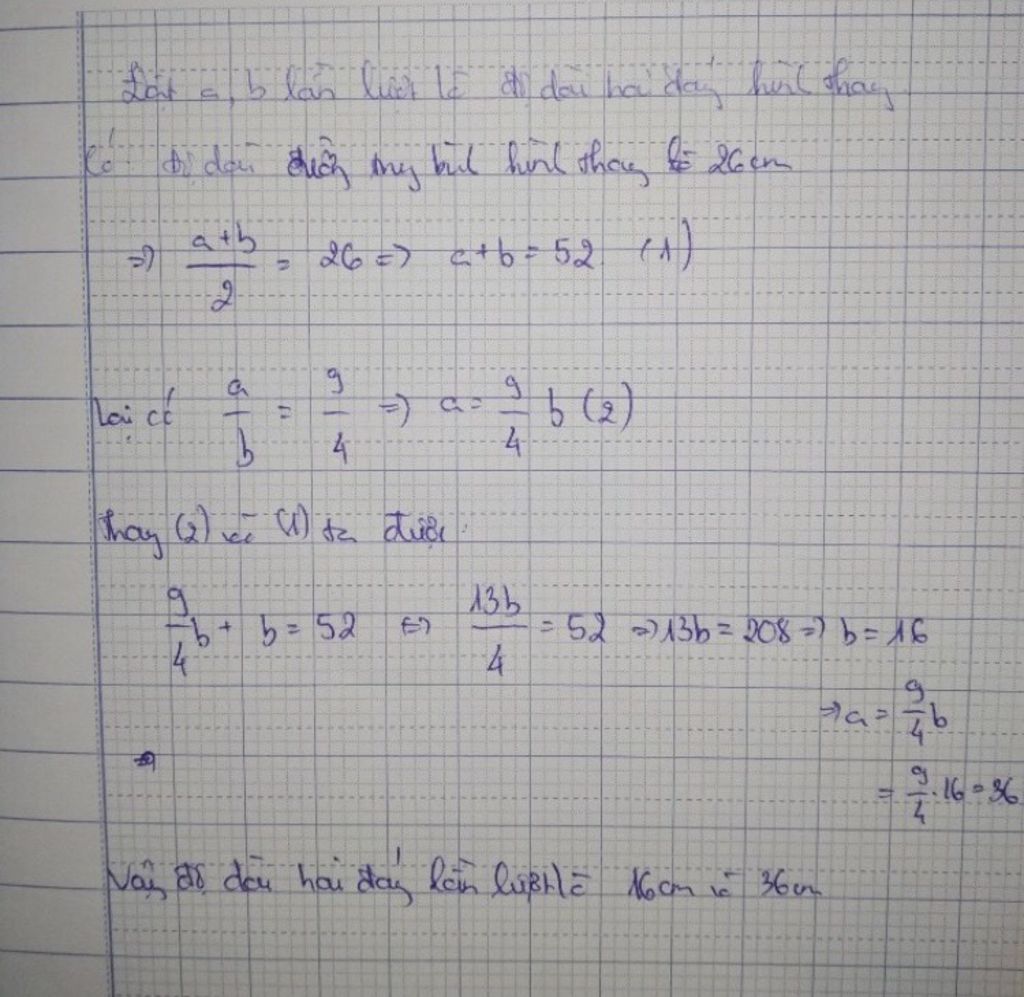 Đặt a, b lần lượt là độ dài hai đáy hình thang
Có độ dài đường trung bình hình thang là 26cm
=> a+b/2 = 26 => a+b = 52 (1)
Lại có a/b = 9/4 => a = 9/4 b (2)
Thay (2) vào (1) ta được:
9/4 b + b = 52 <=> 13b/4 = 52 => 13b = 208 => b = 16
=> a = 9/4 b
= 9/4 . 16 = 36
Vậy độ dài hai đáy lần lượt là 16cm và 36cm